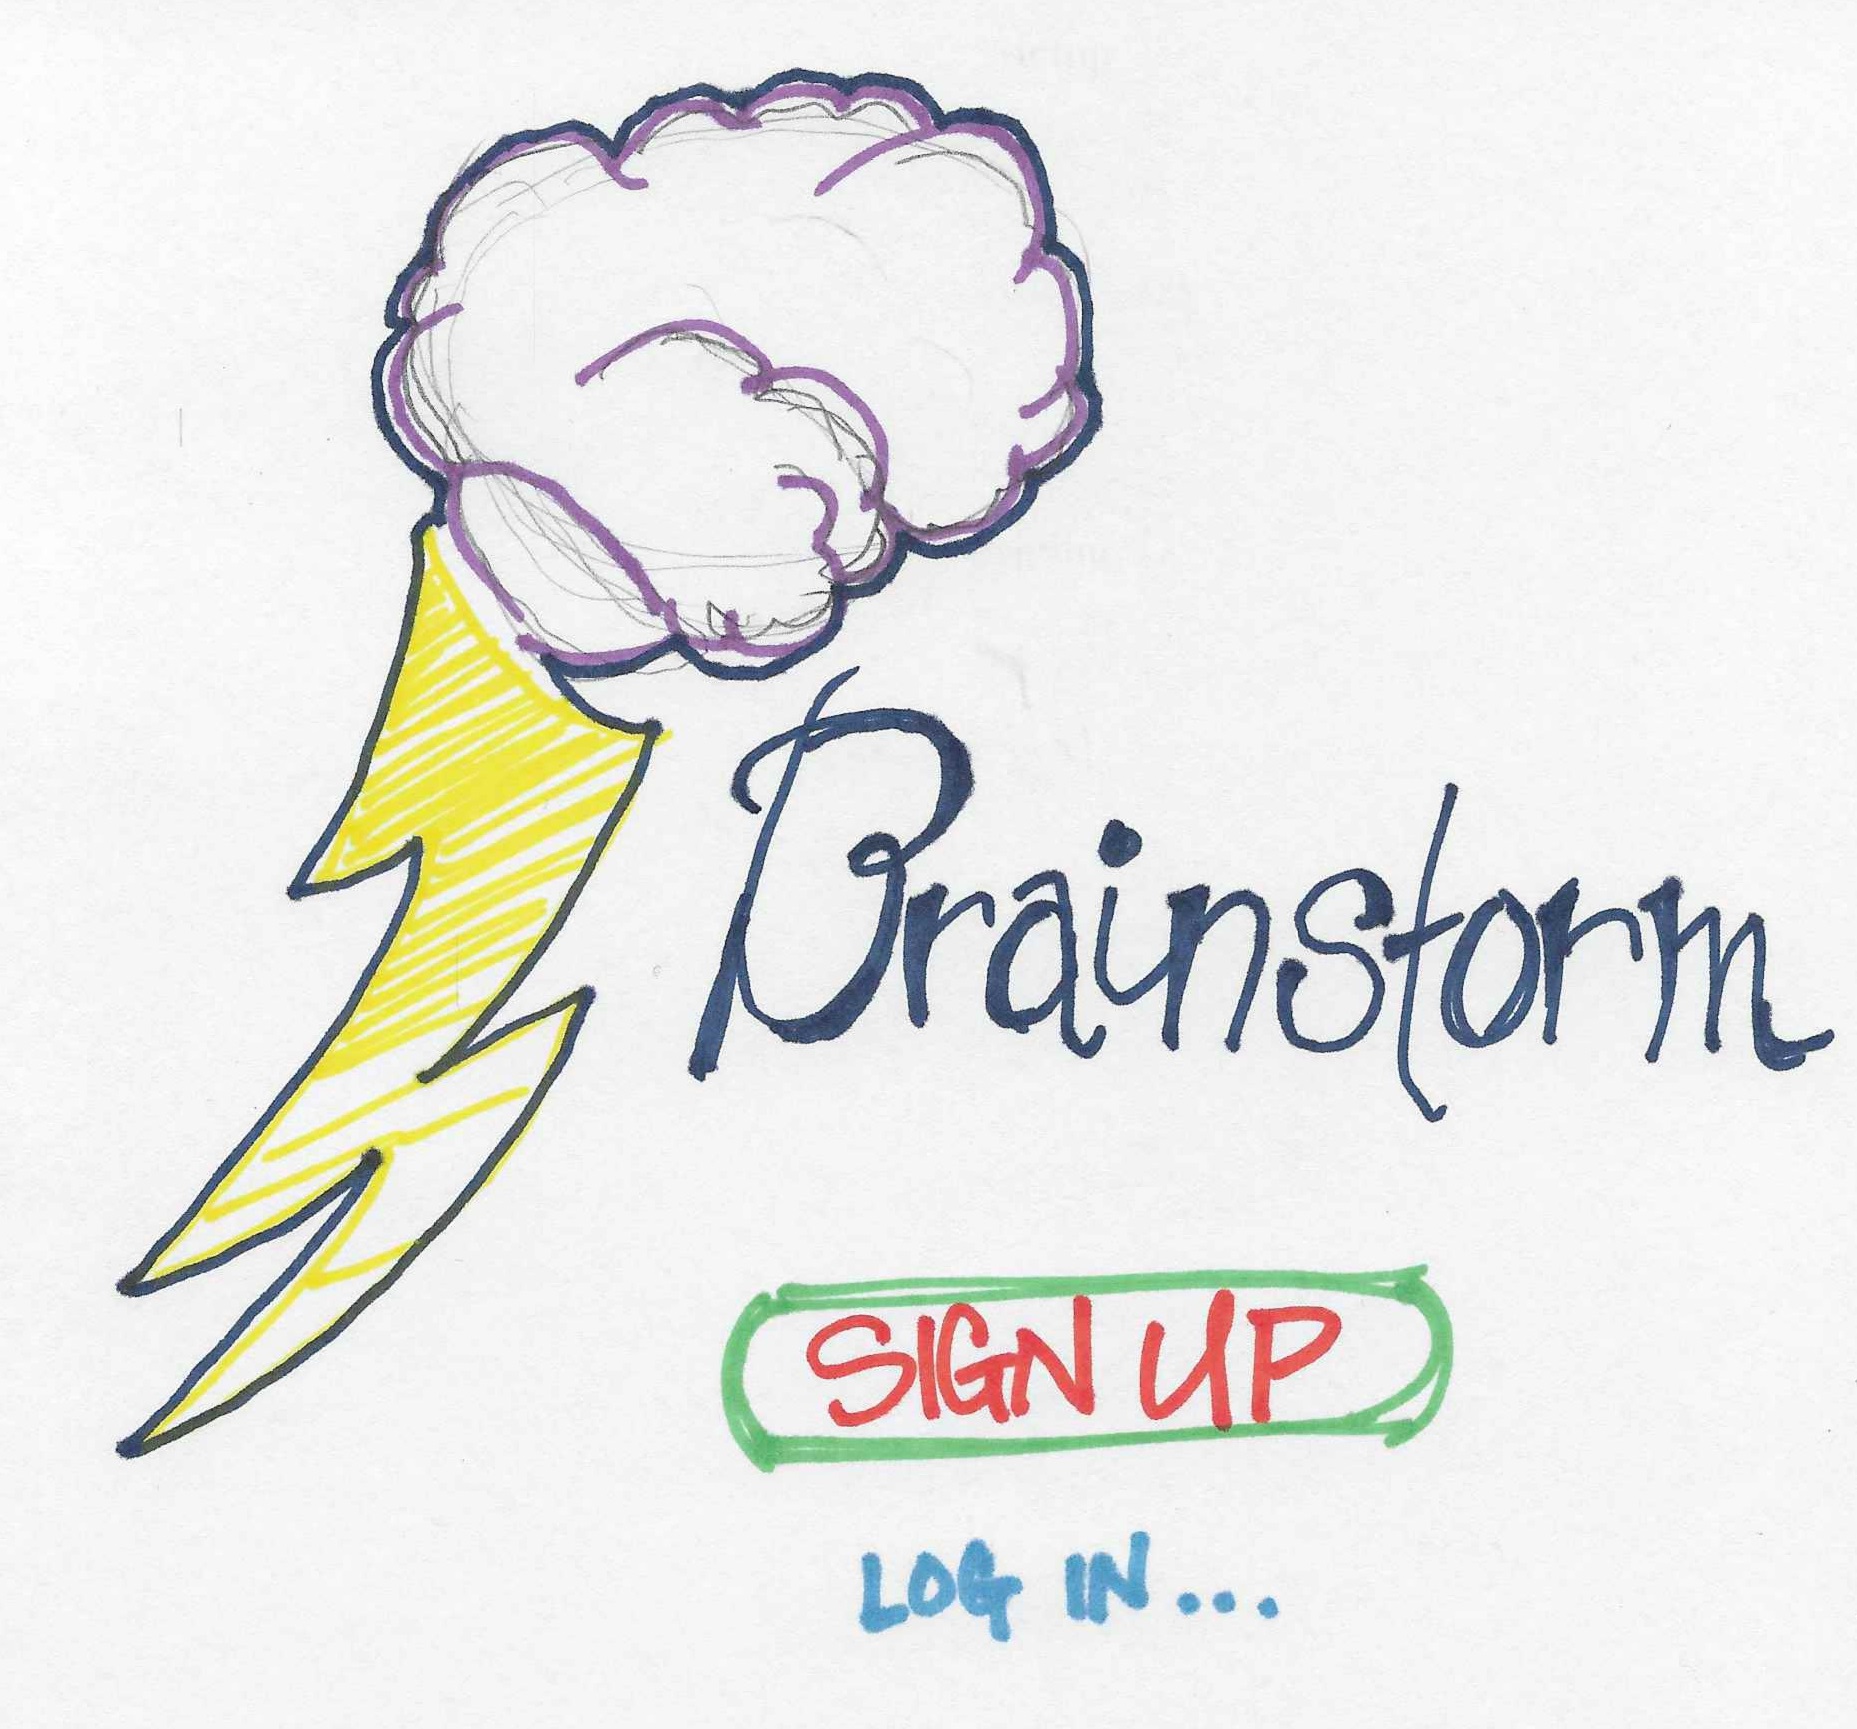 Brainstorm
SIGN UP
LOG IN...